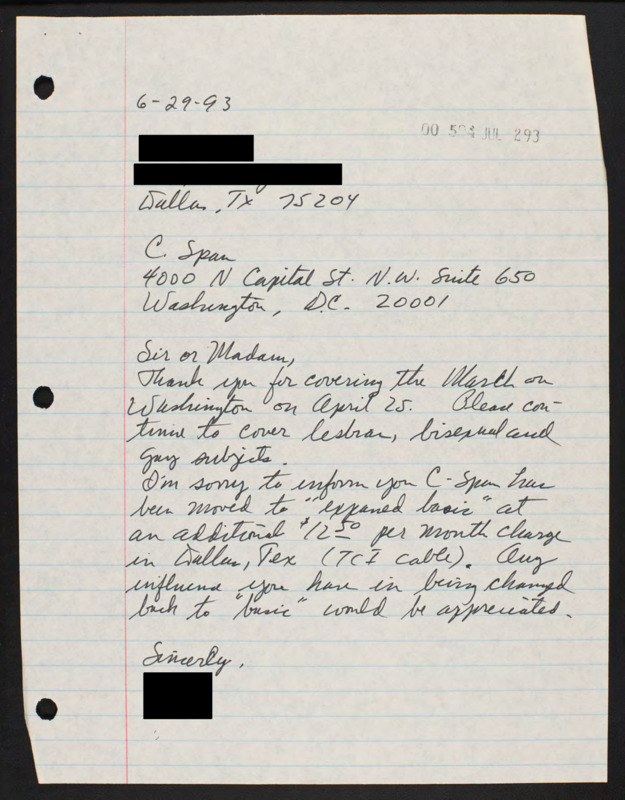 6-29-93
JUL 293
Dallas, TX 75204
C. Span
4000 N Capital St. N.W. Suite 650
Washington, D.C. 20001
Sir or Madam,
Thank you for covering the March on
Washington on April 25. Please con-
tinue to cover lesbian, bisexual and
gay subjects.
I'm sorry to inform you C-Span has
been moved to "expaned basic" at
an additional $12.50 per month charge
in Dallas, Tex (TCI cable). Any
influence you have in being changed
back to "basic" would be appreciated.
Sincerly,